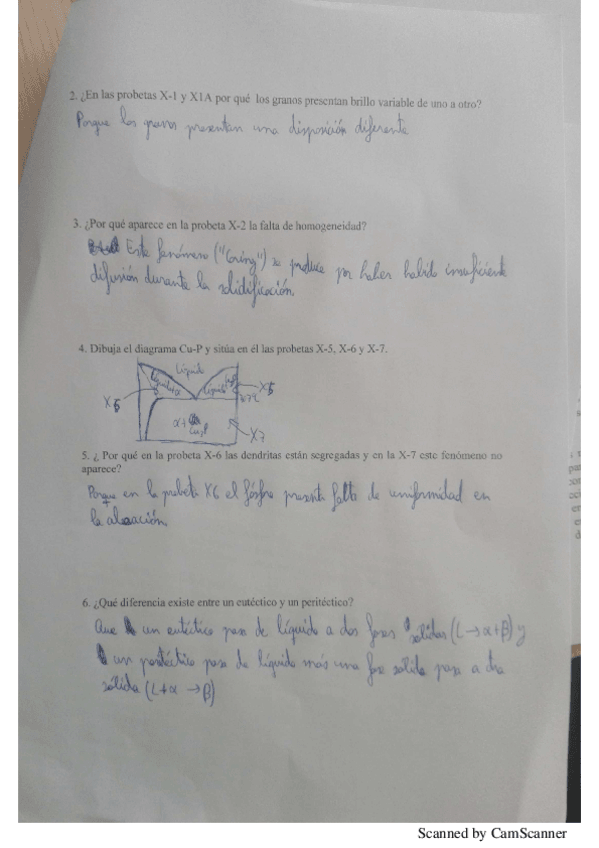 2. ¿En las probetas X-1 y X1A por qué los granos presentan brillo variable de uno a otro?
Porque los granos presentan una disposición diferente
3. ¿Por qué aparece en la probeta X-2 la falta de homogeneidad?
Este fenómeno ("Coring") se produce por haber habido insuficiente
difusión durante la solidificación.
4. Dibuja el diagrama Cu-P y sitúa en él las probetas X-5, X-6 y X-7.
líquido
X7
5. ¿ Por qué en la probeta X-6 las dendritas están segregadas y en la X-7 este fenómeno no
aparece?
Porque en la probeta X6 el fósforo presenta falta de uniformidad en
la aleación.
6. ¿Qué diferencia existe entre un eutéctico y un peritéctico?
Que un eutéctico pasa de líquido a dos fases sólidas (L→α+β) y
un peritéctico pasa de líquido más una fase sólida pasa a otra
sólida (L+α →β)
Scanned by CamScanner